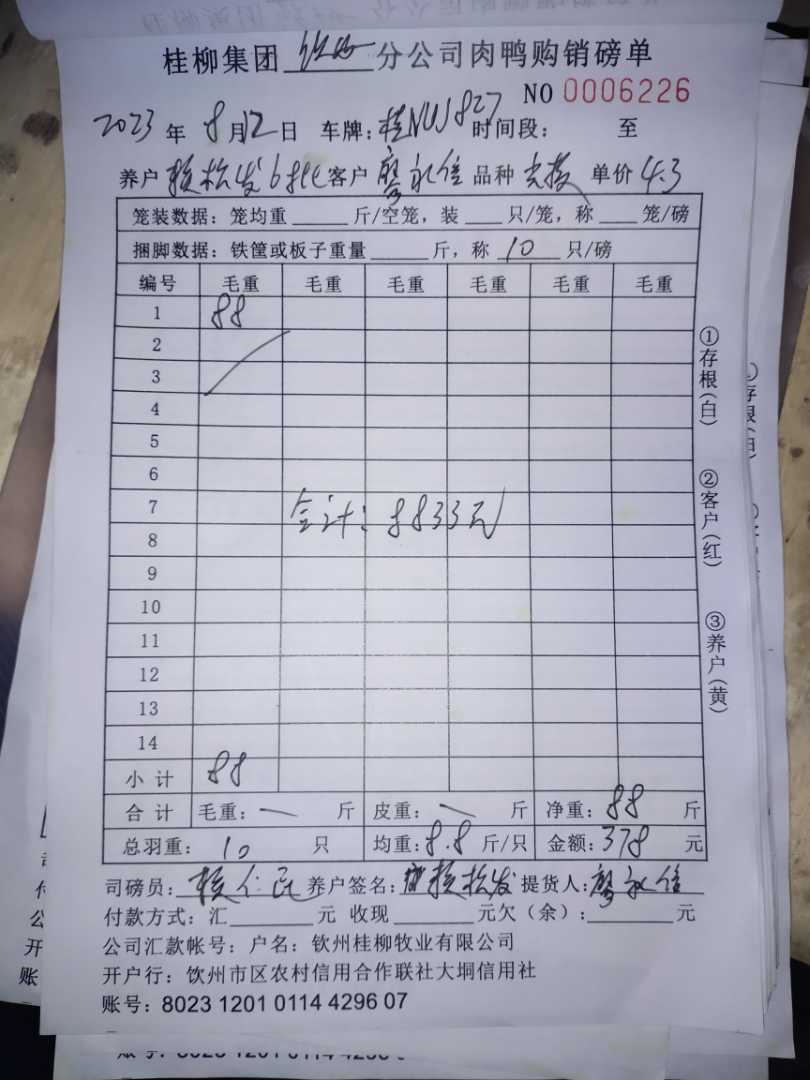 桂柳集团 钦州 分公司肉鸭购销磅单
NO 0006226
2023 年 8 月 12 日 车牌: 桂NW827 时间段: 至
养户 松发 客户 廖永信 品种 单价 4.3
笼装数据: 笼均重 斤/空笼, 装 只/笼, 称 笼/磅
捆脚数据: 铁筐或板子重量 斤, 称 10 只/磅
编号 毛重 毛重 毛重 毛重 毛重 毛重
1 88
2
3
4
5
6
7
合计: 8833元
8
9
10
11
12
13
14
小计 88
合计 毛重: — 斤 皮重: — 斤 净重: 88 斤
总羽重: 10 只 均重: 8.8 斤/只 金额: 378 元
司磅员: 养户签名: 松发 提货人: 廖永信
付款方式: 汇 元 收现 元欠(余): 元
公司汇款帐号: 户名: 钦州桂柳牧业有限公司
开户行: 饮州市区农村信用合作联社大垌信用社
账号: 8023 1201 0114 4296 07
①存根(白)
②客户(红)
③养户(黄)